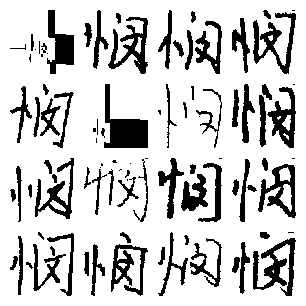 悯悯悯
悯悯悯
悯悯悯悯
悯悯悯悯